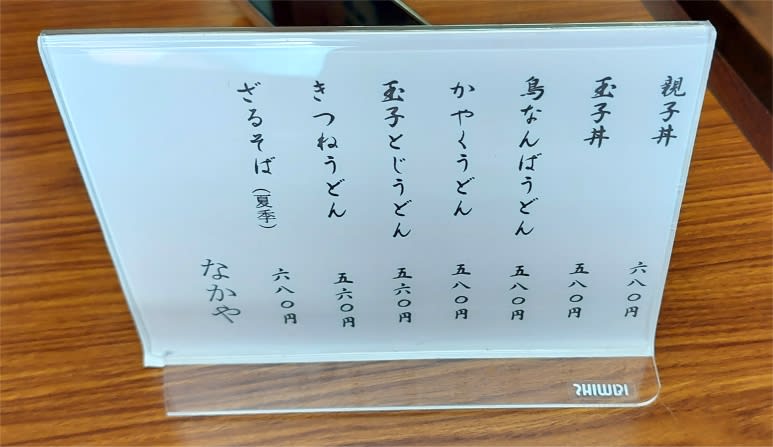 親子丼 六八〇円
玉子丼 五八〇円
鳥なんばうどん 五八〇円
かやくうどん 五八〇円
玉子とじうどん 五六〇円
きつねうどん 五六〇円
ざるそば（夏季） 六八〇円
なかや
SHIMBI